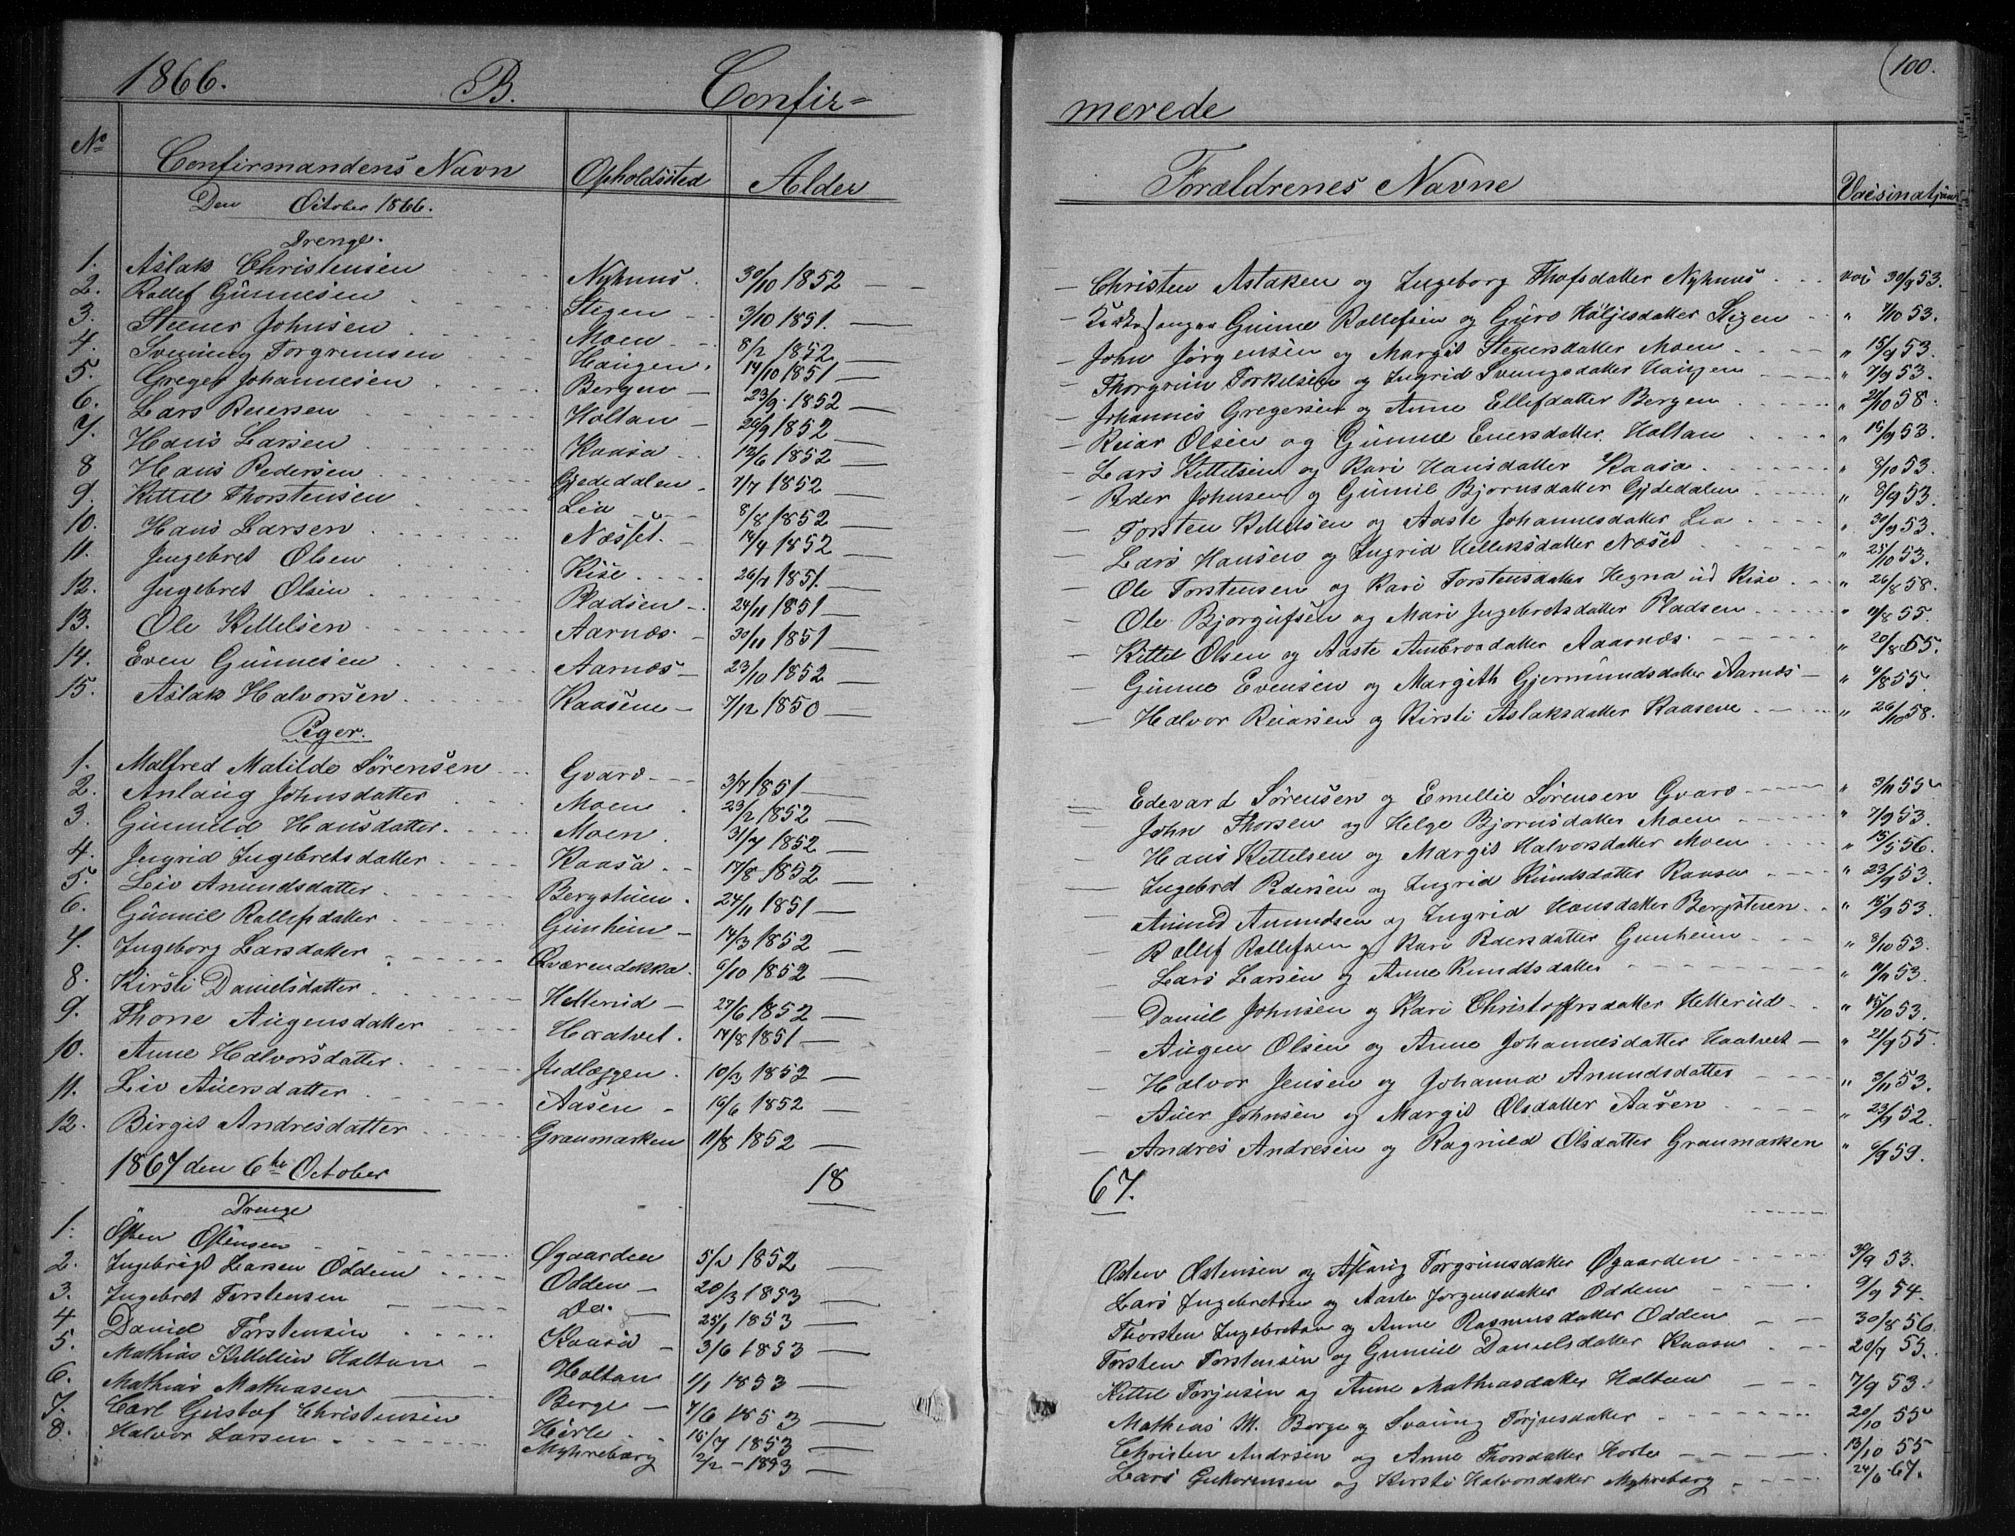 1866. B. Confir= merede (100.
No Confirmandens Navn Opholdssted Alder Forældrenes Navne Vacsinatjon
Den October 1866.
Drenge.
1. Aslak Christensen Nyhuus. 30/10 1852 Christen Aslaksen og Ingeborg Thofsdatter Nyhuus vac 30/9 53.
2. Rollef Gunnesen Stigen 3/10 1851. Gunne Rollefsen og Guro Høljesdatter Stigen " 7/10 53.
3. Steener Johnsen Moen 8/2 1852 John Jørgensen og Margit Steenersdatter Moen " 15/9 53.
4. Svenung Torgrimsen Haugen. 14/10 1851 Thorgrim Torkelsen og Ingrid Svenugsdatter Haugen " 7/9 53.
5. Greger Johannesen Bergen 23/9 1852 Johannes Gregersen og Anne Ellefdatter Bergen " 21/10 58.
6. Lars Reiersen Holtan 29/9 1852 Reiar Olsen og Gunnil Enersdatter Holtan " 19/9 53.
7. Hans Larsen Kaasa 12/6 1852 Lars Kittelsen og Kari Hansdatter Kaasa " 8/10 53.
8 Hans Pedersen Gjededalen 7/7 1852 Peder Johnsen og Gunnil Bjornsdatter Gjededalen " 8/9 53.
9. Kittil Thorstensen Lia 8/8 1852 Torsten Kittilsen og Aaste Johannesdatter Lia " 30/9 53.
10. Hans Larsen Næsset. 14/4 1852 Lars Hansen og Ingrid Helleksdatter Næset " 25/10 53.
11. Ingebret Olsen Rise 26/7 1851. Ole Torstensen og Kari Torstensdatter Hegna ud Rise " 26/8 58.
12. Ingebret Olsen Pladsen 24/11 1851 Ole Bjorgufsen og Mari Ingebretsdatter Pladsen " 11/8 55.
13. Ole Kittelsen Aarnæs. 30/11 1851 Kittel Olsen og Aaste Ambrosdatter Aaarnæs. " 20/8 55.
14. Even Gunnesen Aarnæs 23/10 1852 Gunne Evensen og Margith Gjermundsdatter Aarnæs " 4/8 55.
15. Aslak Halvorsen Kaasene 7/12 1850 Halvor Reiarsen og Kirsti Aslaksdatter Kaasene " 26/10 58.
Piger.
1. Malfred Matilde Sørensen Gvarv 3/7 1851 Edevard Sørensen og Emellie Sørensen Gvarv " 3/11 55
2. Anlaug Johnsdatter Moen 23/2 1852 John Thorsen og Helge Bjornsdatter Moen " 7/9 53.
3. Gunnild Hansdatter. Moen. 3/7 1852 Hans Kittelsen og Margit Halvorsdatter Moen " 15/5 56.
4. Ingrid Ingebretsdatter Kaasa 17/8 1852 Ingebret Pedersen og Ingrid Knudsdatter Kaasa " 23/9 53.
5. Liv Anundsdatter Bergstuen. 24/11 1851 Anund Anundsen og Ingrid Hansdatter Bergstuen " 15/9 53.
6. Gunnil Rollefsdatter Gunheim 14/3 1852 Rollef Rollefsen og Kari Pedersdatter Gunheim " 8/10 53.
7. Ingeborg Larsdatter Qværendokka. 6/10 1852 Lars Larsen og Anne Knudtsdatter " 11/11 53.
8. Kirsti Danielsdatter Hetterud 27/6 1852 Daniel Johnsen og Kari Christoffersdatter Hetterud " 15/10 53.
9. Thone Augensdatter Haatvet. 14/8 1851 Augen Olsen og Anne Johannesdatter Haatvet " 21/9 55.
10. Anne Halvorsdatter Indlæggen. 10/3 1852 Halvor Jensen og Johanna Anundsdatter " 3/11 53.
11. Liv Auersdatter Aasen 16/6 1852 Auer Johnsen og Margit Olsdatter Aasen " 23/9 52.
12. Birgit Andresdatter Graumarken 11/8 1852 Andres Andresen og Ragnild Olsdatter Graumarken " 6/9 59.
1867 den 6te October 18 67.
Drenge
1. Østen Østensen Øgaarden 5/2 1852 Østen Østensen og Aslaug Torgrimsdatter Øgaarden 30/9 53.
2. Ingebrigt Larsen Odden Odden 20/3 1853 Lars Ingebretsen og Aaste Jørgensdatter Odden 9/9 54.
3. Ingebret Torstensen Do. 25/1 1853 Thorsten Ingebretsen og Anne Rasmusdatter Odden 30/8 56
4. Daniel Torstensen Kaasa 3/6 1853 Torsten Torstensen og Gunnil Danielsdatter Kaasa 20/7 55.
5. Mathias Kittelsen Holtan Holtan 1/1 1853 Kittil Torjusen og Anne Mathiasdatter Holtan 7/9 53.
6. Mathias Mathiasen Berge 7/6 1853 Mathias M. Borge og Svanug Torjusdatter 20/10 55
7. Carl Gustaf Christensen Hörte 15/7 1853 Christen Andrsen og Anne Thorsdatter Horte 13/10 55
8. Halvor Larsen Myhreborg 2/2 1853 Lars Gulvorensen og Kirsti Halvorsdatter Myhreborg 24/6 67.